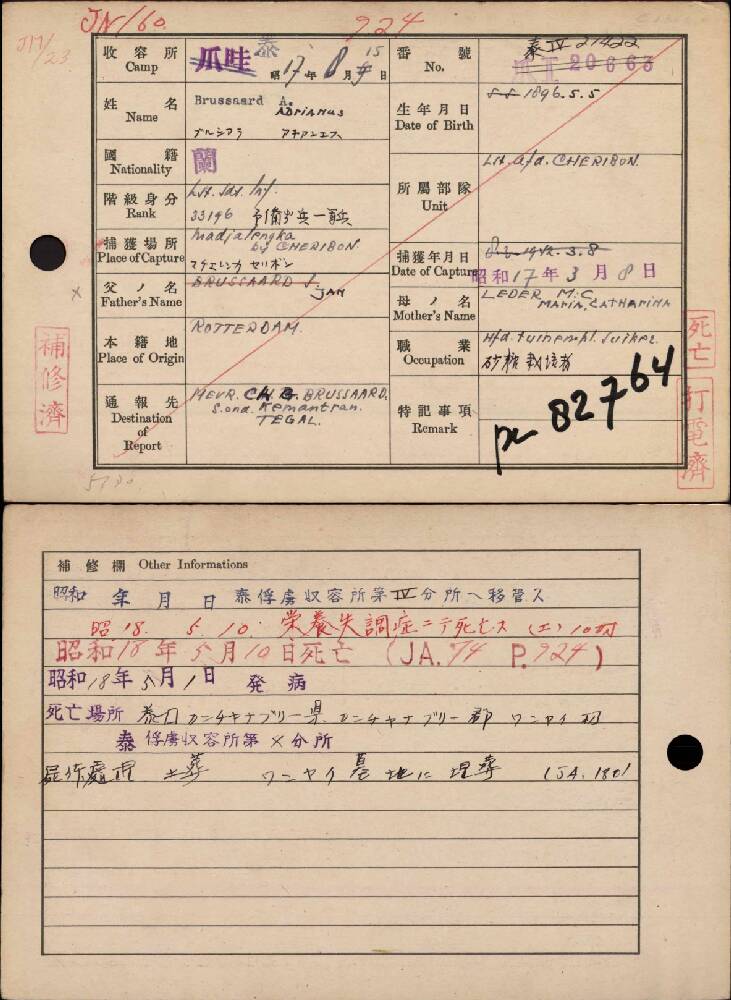 JN/60.
924
收容所 Camp 爪哇 泰 昭17年8月15日
番號 No. 泰IV 21422 爪I 20663
姓名 Name Brussaard A. ADRIANUS
ブルシアラ アドリアンエス
生年月日 Date of Birth 1896.5.5
國籍 Nationality 蘭
階級身分 Rank Lst. Sdt. Inf.
33196 予備歩兵一等兵
所屬部隊 Unit Lst. a/d. CHERIBON.
捕獲場所 Place of Capture Madjalengka by CHERIBON
マヂエレンカ セリボン
捕獲年月日 Date of Capture 8-3-1942. 3.8
昭和17年3月8日
父ノ名 Father's Name BRUSSAARD J. JAN
母ノ名 Mother's Name LEDER M.C. MARIA, CATHARINA
本籍地 Place of Origin ROTTERDAM.
職業 Occupation Hfd. tuinempl. Suiker
砂糖栽培者
通報先 Destination of Report MEVR. CH. G. BRUSSAARD.
S. ond. Kemantran.
TEGAL.
特記事項 Remark
82764
補修濟
死亡
打電濟
補修欄 Other Informations
昭和 年 月 日 泰俘虜収容所第IV分所ヘ移管ス
昭18. 5. 10. 栄養失調症ニテ死亡ス
昭和18年5月10日死亡 (JA. 74 P. 924)
昭和18年5月1日 発病
死亡場所 泰国カンチャナブリー県カンチャナブリー郡ワンヤイ村
泰俘虜収容所第 分所
屍体處理 土葬 ワンヤイ墓地に埋葬 (JA. 180)